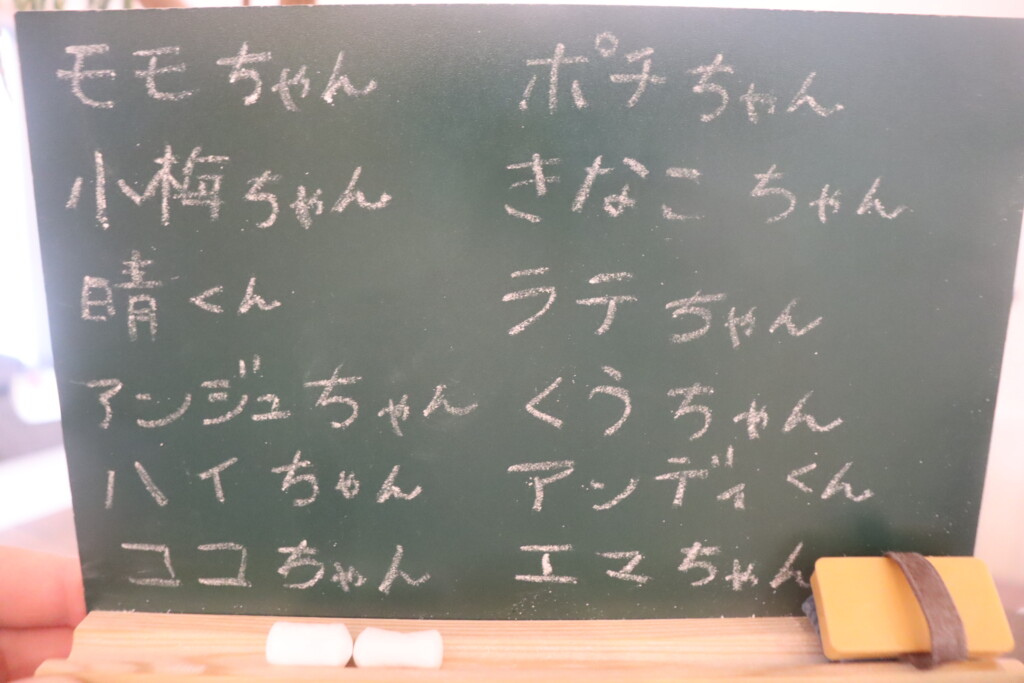 モモちゃん
小梅ちゃん
晴くん
アンジュちゃん
ハイちゃん
ココちゃん
ポチちゃん
きなこちゃん
ラテちゃん
くうちゃん
アンディくん
エマちゃん